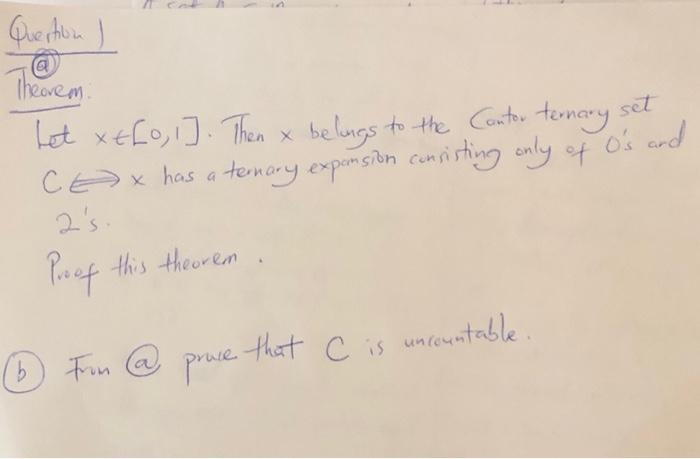 Question 1
ⓐ
Theorem:
Let x∈[0,1]. Then x belongs to the Cantor ternary set
C ⟺ x has a ternary expansion consisting only of 0's and
2's.
Proof this theorem.
ⓑ From ⓐ prove that C is uncountable.